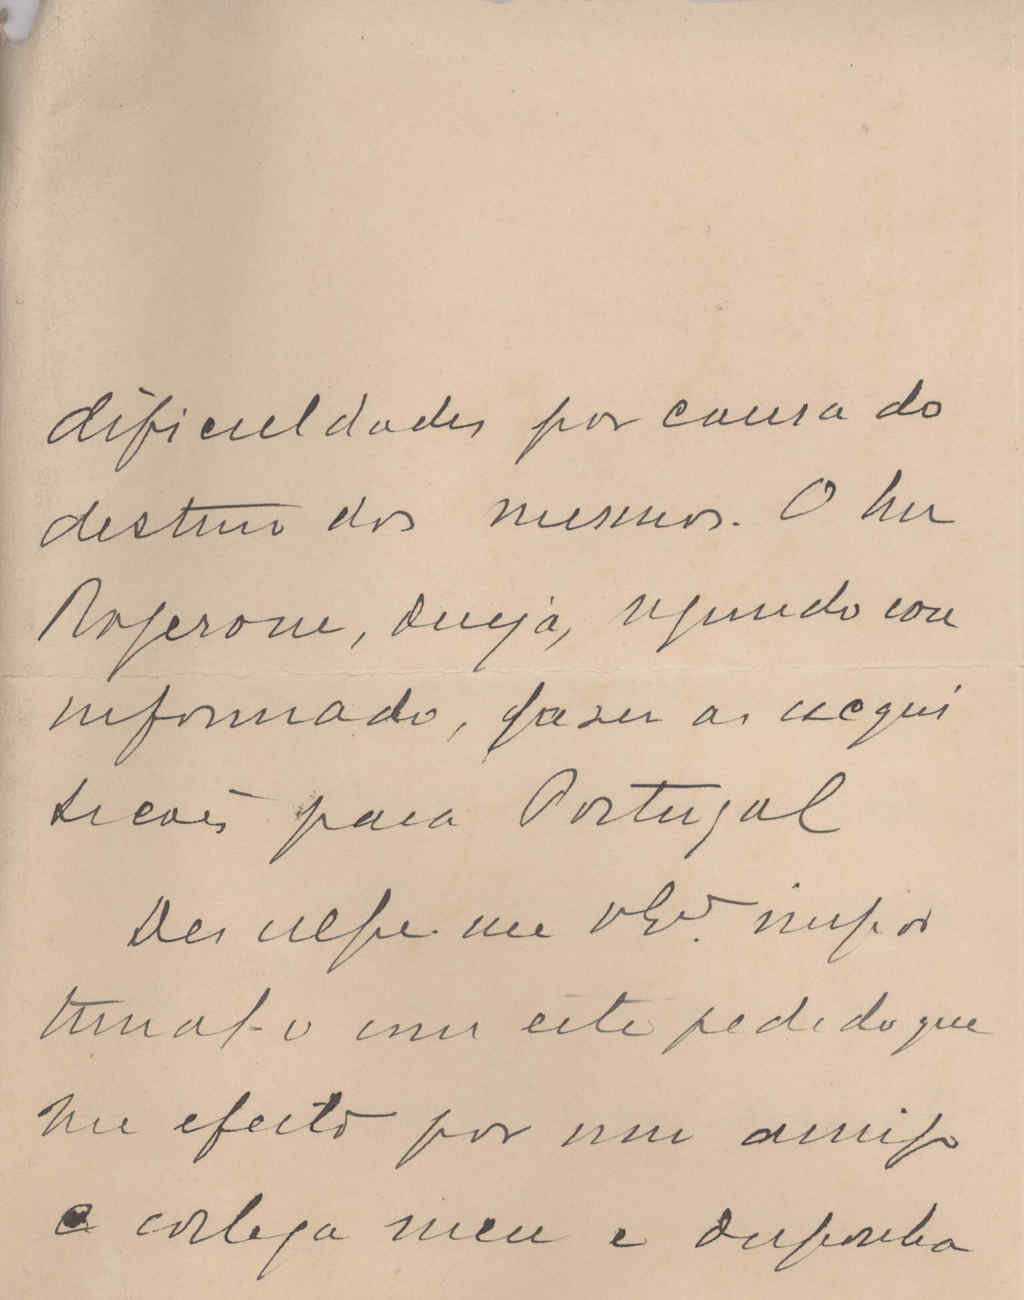 dificuldades por causa do
destino dos mesmos. O Snr
Rogerone, deseja, segundo sou
informado, fazer as acqui
sicões para Portugal
Desculpe-me V Exª. impor
tunal-o com este pedido que
me é feito por um amigo
e collega meu e disponha